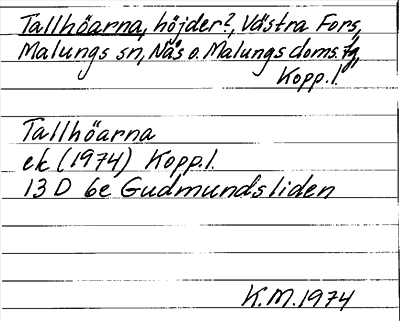 Tallhöarna, höjder?, Västra Fors,
Malungs sn, Nås o. Malungs doms. tg,
Kopp. l.
Tallhöarna
ek (1974) Kopp. l.
13 D 6e Gudmundsliden
K.M. 1974